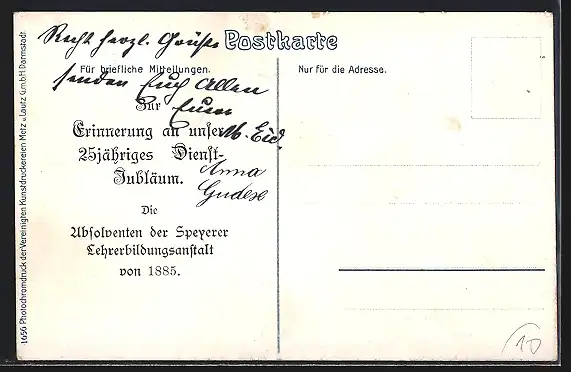 Recht herzl. Grüße
Postkarte
Für briefliche Mitteilungen.
Nur für die Adresse.
senden Euch Allen
Zur
Eure
Erinnerung an unser
25jähriges Dienst-
Jubiläum.
Anna
Die
Absolventen der Speyerer
Lehrerbildungsanstalt
von 1885.
1656 Photochromdruck der Vereinigten Kunstdruckereien Metz u. Lautz G.m.b.H. Darmstadt.
10